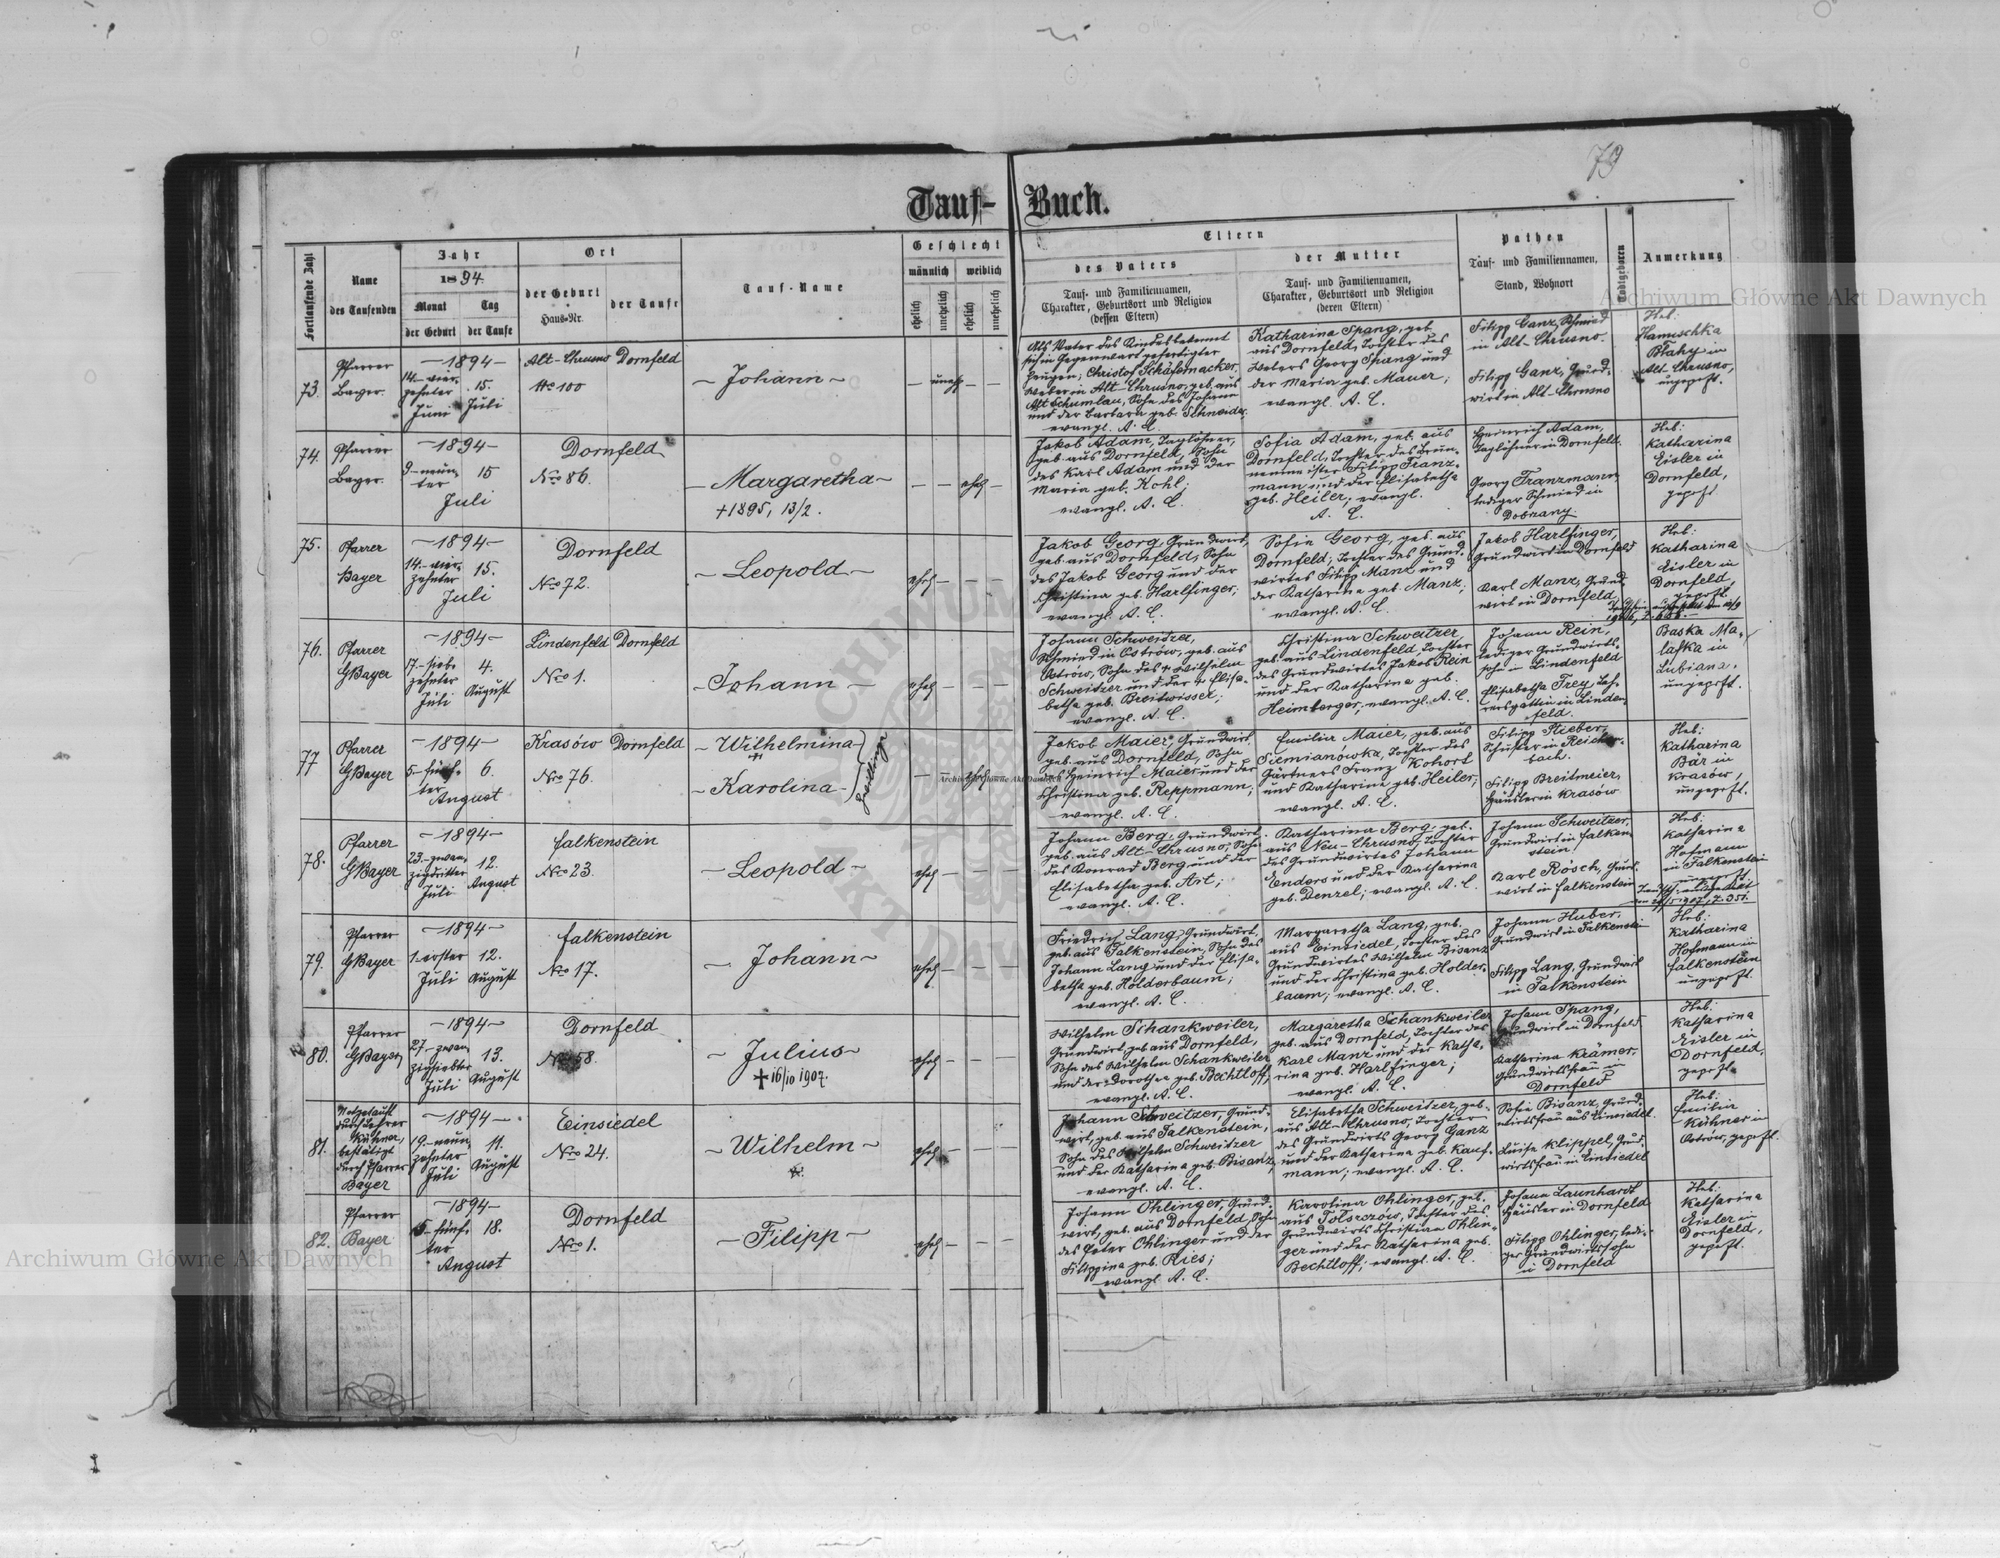 79
Tauf-Buch.
Fortlaufende Zahl
Name
des Taufenden
Jahr
1894.
Monat
der Geburt
Tag
der Taufe
Ort
der Geburt
Haus-Nr.
der Taufe
Tauf-Name
Geschlecht
männlich
weiblich
ehelich
unehelich
ehelich
unehelich
Eltern
des Vaters
Tauf- und Familiennamen,
Charakter, Geburtsort und Religion
(dessen Eltern)
der Mutter
Tauf- und Familiennamen,
Charakter, Geburtsort und Religion
(deren Eltern)
Pathen
Tauf- und Familiennamen,
Stand, Wohnort
Todtgeboren
Anmerkung
73.
Pfarrer
Bayer.
-1894-
14.-vier-
zehnter
Juni
15.
Juli
Alt-Chrusno
No 100
Dornfeld
-Johann-
- uneh - -
Als Vater des Kindes bekennt
sich in Gegenwart gefertigter
Zeugen; Christof Schäfernacker,
Weber in Alt-Chrusno, geb. aus
Sohn des Johann
und der Barbara geb. Schneider
evangl. A. C.
Katharina Spang, geb.
aus Dornfeld, Tochter des
Webers Georg Spang und
der Maria geb. Mauer;
evangl. A. C.
Filipp Ganz, Schmied
in Alt-Chrusno.
Filipp Ganz, Grund-
wirt in Alt-Chrusno
Heb:
Hanuschka
Błahy in
Alt-Chrusno,
ungeprft.
74.
Pfarrer
Bayer.
-1894-
9-neun-
ter
Juli
15
Dornfeld
Nro 86.
-Margaretha-
+1895, 13/2.
- - ehel -
Jakob Adam, Taglöhner,
geb. aus Dornfeld, Sohn
des Karl Adam und der
Maria geb. Kohl;
evangl. A. C.
Sofia Adam, geb. aus
Dornfeld, Tochter des Brun-
nenmeister Filipp Franz-
mann und der Elisabetha
geb. Heiler; evangl.
A. C.
Heinrich Adam,
Taglöhner in Dornfeld.
Georg Franzmann
lediger Schmied in
Dobrzany.
Heb:
Katharina
Eisler in
Dornfeld,
geprft
75.
Pfarrer
Bayer
-1894-
14.-vier-
zehnter
Juli
15.
Dornfeld
Nro 72.
-Leopold-
ehel - - -
Jakob Georg, Grundwirt,
geb. aus Dornfeld, Sohn
des Jakob Georg und der
Christina geb. Harlfinger;
evangl. A. C.
Sofia Georg, geb. aus
Dornfeld, Tochter des Grund-
wirtes Filipp Manz und
der Katharina geb. Manz;
evangl. A. C.
Jakob Harlfinger,
Grundwirt in Dornfeld
Karl Manz, Grund-
wirt in Dornfeld
Heb:
Katharina
Eisler in
Dornfeld,
geprft.
76.
Pfarrer
GBayer
-1894-
17.-sieb-
zehnter
Juli
4.
August
Lindenfeld
Nro 1.
Dornfeld
-Johann-
ehel - - -
Johann Schweitzer,
Schmied in Ostrów, geb. aus
Ostrów, Sohn des + Wilhelm
Schweitzer und der + Elisa-
betha geb. Breitwisser;
evangl. A. C.
Christina Schweitzer
geb. aus Lindenfeld, Tochter
des Grundwirtes Jakob Rein
und der Katharina geb.
Heimberger; evangl. A. C.
Johann Rein,
lediger Grundwirts-
sohn in Lindenfeld
Elisabetha Frey, Leh-
rersgattin in Linden-
feld.
Baska Ma-
lafka in
Lubiana.
ungeprft.
77
Pfarrer
GBayer
-1894-
5-fünf-
ter
August
6.
Krasów
Nro 76.
Dornfeld
-Wilhelmina
+
-Karolina-
Zwillinge
- - ehel -
Jakob Maier, Grundwirt,
geb. aus Dornfeld, Sohn
des Heinrich Maier und der
Christina geb. Reppmann;
evangl. A. C.
Emilia Maier, geb. aus
Siemianówka, Tochter des
Gärtners Franz Kohort
und Katharina geb. Heiler;
evangl. A. C.
Filipp Stieber,
Schuster in Reichen-
bach.
Filipp Breitmeier,
Häusler in Krasów
Heb:
Katharina
Bär in
Krasów,
ungeprft.
78.
Pfarrer
GBayer
-1894-
23.-zwan-
zigdritter
Juli
12.
August
Falkenstein
Nro 23.
-Leopold-
ehel - - -
Johann Berg, Grundwirt
geb. aus Alt-Chrusno, Sohn
des Konrad Berg und der
Elisabetha geb. Art;
evangl. A. C.
Katharina Berg, geb.
aus Neu-Chrusno, Tochter
des Grundwirtes Johann
Enders und der Katharina
geb. Denzel; evangl. A. C.
Johann Schweitzer,
Grundwirt in Falken-
stein
Karl Rösch, Grund-
wirt in Falkenstein
Heb:
Katharina
Hofmann
in Falkenstein
ungeprft.
79.
Pfarrer
GBayer
-1894-
1-erster
Juli
12.
August
Falkenstein
No 17.
-Johann-
ehel - - -
Friedrich Lang, Grundwirt,
geb. aus Falkenstein, Sohn des
Johann Lang und der Elisa-
betha geb. Holderbaum;
evangl. A. C.
Margaretha Lang, geb.
aus Einsiedel, Tochter des
Grundwirtes Wilhelm Bisanz
und der Christina geb. Holder-
baum; evangl. A. C.
Johann Huber,
Grundwirt in Falkenstein
Filipp Lang, Grundwirt
in Falkenstein
Heb:
Katharina
Hofmann in
Falkenstein
ungeprft.
80.
Pfarrer
GBayer
-1894-
27-zwan-
zigsiebter
Juli
13.
August
Dornfeld
No 58.
-Julius-
+ 16/10 1907.
ehel - - -
Wilhelm Schankweiler,
Grundwirt, geb. aus Dornfeld,
Sohn des Wilhelm Schankweiler
und der Dorothea geb. Bechtloff;
evangl. A. C.
Margaretha Schankweiler
geb. aus Dornfeld, Tochter des
Karl Manz und der Katha-
rina geb. Harlfinger;
evangl. A. C.
Johann Spang,
Grundwirt in Dornfeld
Katharina Krämer,
Grundwirtsfrau in
Dornfeld
Heb:
Katharina
Eisler in
Dornfeld,
geprft.
81.
Notgetauft
durch Lehrer
Kühner,
bestätigt
durch Pfarrer
Bayer
-1894-
19-neun-
zehnter
Juli
11.
August
Einsiedel
Nro 24.
-Wilhelm-
ehel - - -
Johann Schweitzer, Grund-
wirt, geb. aus Falkenstein,
Sohn des Wilhelm Schweitzer
und der Katharina geb. Bisanz;
evangl. A. C.
Elisabetha Schweitzer, geb.
aus Alt-Chrusno, Tochter
des Grundwirts Georg Ganz
und der Katharina geb. Kauf-
mann; evangl. A. C.
Sofia Bisanz, Grund-
wirtsfrau aus Einsiedel
Luise Klippel, Grund-
wirtsfrau in Einsiedel
Heb:
Emilia
Kühner in
Ostrów, geprft.
82.
Pfarrer
Bayer
-1894-
5-fünf-
ter
August
18.
Dornfeld
Nro 1.
-Filipp-
ehel - - -
Johann Ohlinger, Grund-
wirt, geb. aus Dornfeld, Sohn
des Peter Ohlinger und der
Filippina geb. Ries;
evangl. A. C.
Karolina Ohlinger, geb.
aus Tolszczów, Tochter des
Grundwirts Christian Ohlin-
ger und der Katharina geb.
Bechtloff; evangl. A. C.
Johann Launhardt
Häusler in Dornfeld
Filipp Ohlinger, ledi-
ger Grundwirtssohn
in Dornfeld
Heb:
Katharina
Eisler in
Dornfeld,
geprft.
Archiwum Główne Akt Dawnych
Archiwum Główne Akt Dawnych
Archiwum Główne Akt Dawnych